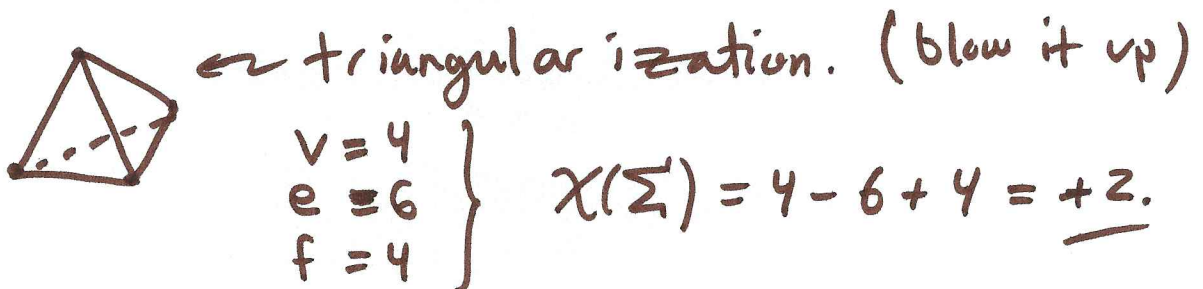 ← triangularization. (blow it up)
v = 4
e = 6
f = 4
χ(Σ) = 4 - 6 + 4 = +2.